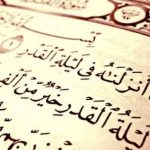 بِسْــــ
أَنزَلْنَٰهُ فِى لَيْلَةِ ٱلْقَدْرِ ١
لَيْلَةُ ٱلْقَدْرِ خَيْرٌ مِّنْ أَلْفِ
رَبِّهِم